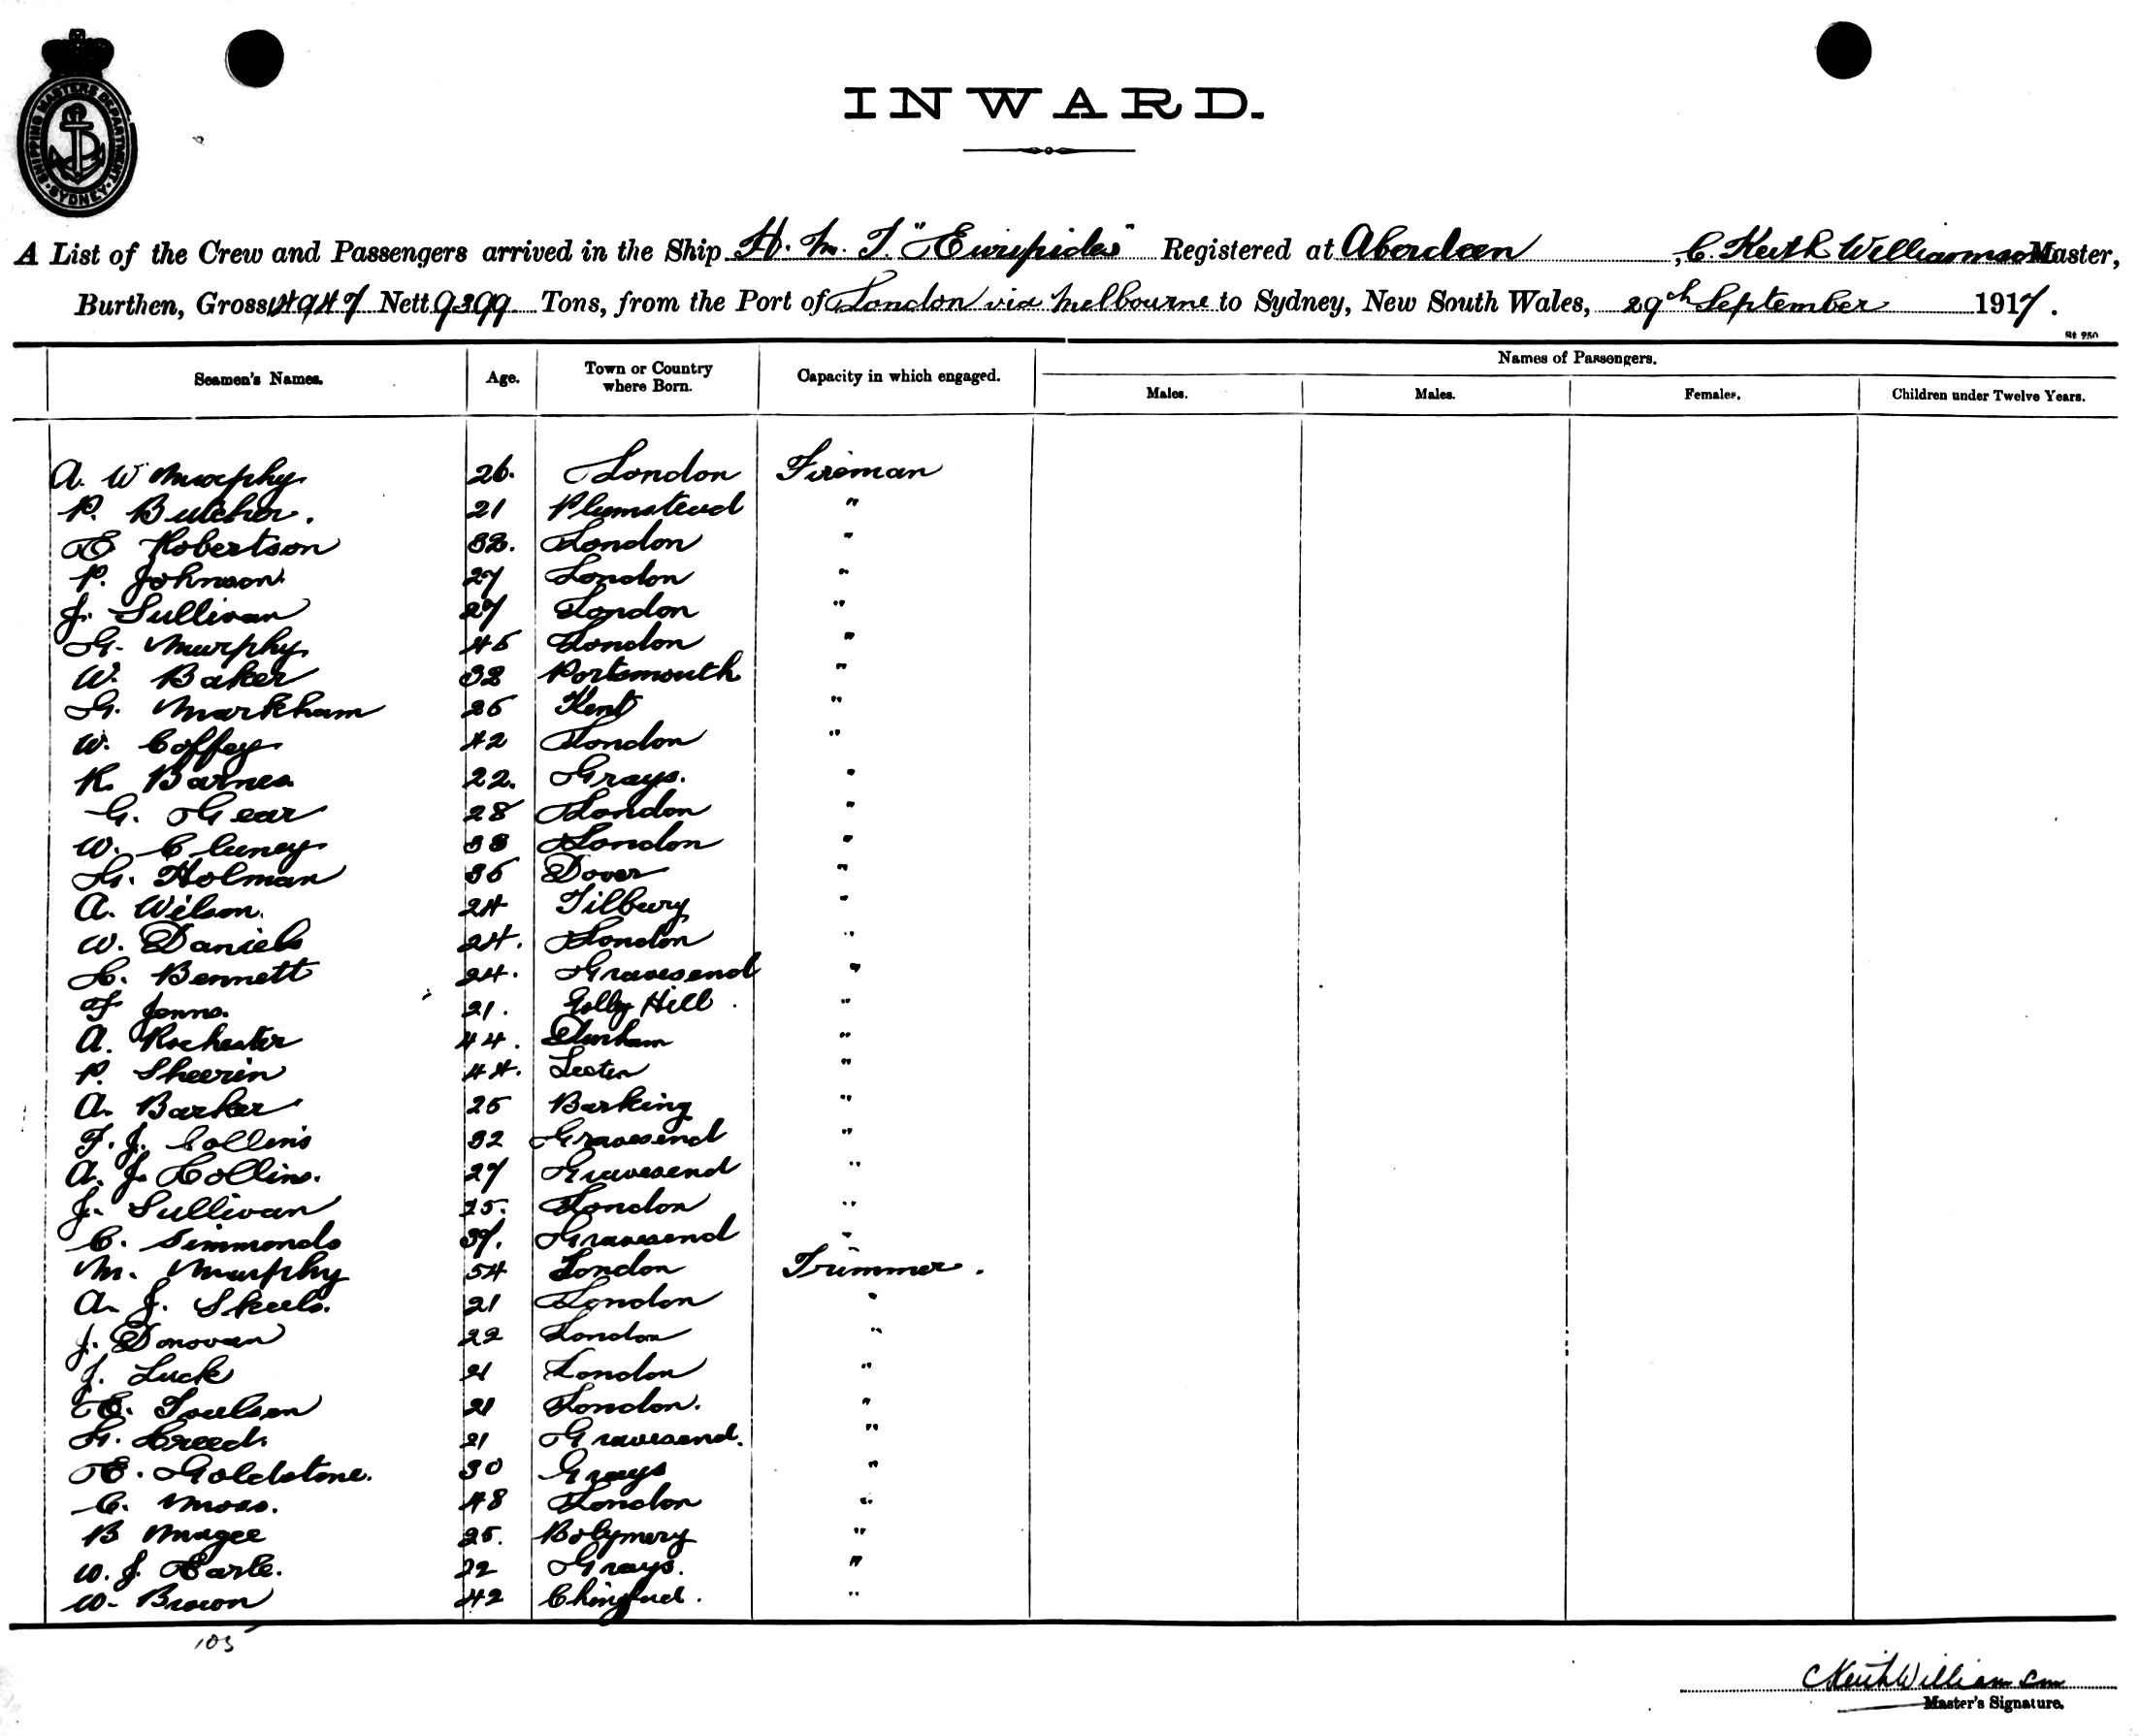 SHIPPING MASTERS DEPARTMENT · SYDNEY ·
INWARD.
A List of the Crew and Passengers arrived in the Ship H. M. T. "Euripides" Registered at Aberdeen, C. Keith Williamson Master,
Burthen, Gross 14947 Nett 9399 Tons, from the Port of London via Melbourne to Sydney, New South Wales, 29th September 1917.
St 250
Names of Passengers.
Seamen's Names. Age. Town or Country where Born. Capacity in which engaged. Males. Males. Females. Children under Twelve Years.
A. W Murphy 26. London Fireman
P. Butcher. 21 Plumstead "
E Robertson 32. London "
P. Johnson 27 London "
J. Sullivan 27 London "
G. Murphy 45 London "
W. Baker 32 Portsmouth "
G. Markham 25 Kent "
W. Coffey 42 London "
R. Barnes 22. Grays. "
G. Gear 28 London "
W. Cluney 38 London "
G. Holman 35 Dover "
A. Wilson. 24 Tilbury "
W. Daniels 24. London "
C. Bennett 24. Gravesend "
F Jenns. 21. Hill "
A. Rochester 44. Durham "
P. Sheerin 44. "
A. Barker 25 Barking "
F. J. Collins 32 Gravesend "
A. J. Collins. 27 Gravesend "
J. Sullivan 25. London "
C. Simmonds 37. Gravesend "
M. Murphy 54 London Trimmer.
A. J. Skeels. 21 London "
J. Donovan 22 London "
J. Luck 21 London "
E. Toulson 21 London. "
G. Creed. 21 Gravesend. "
E. Goldstone. 30 Grays "
C. Moss. 48 London "
B Magee 25. "
W. J. Earle. 22 Grays. "
W. Brown 42 "
103
C Keith Williamson
Master's Signature.